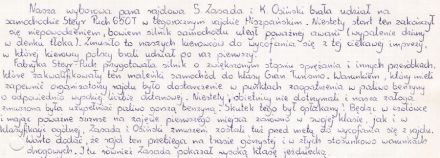 Nasza wyborowa para rajdowa S. Zasada i K. Osiński brała udział na
samochodzie Steyr Puch 650T w tegorocznym rajdzie Hiszpańskim. Niestety start ten zakończył
się niepowodzeniem, bowiem silnik samochodu uległ poważnej awarii (wypalenie dziury
w denku tłoka). Zmusiło to naszych kierowców do wycofania się z tej ciekawej imprezy,
w której kierowcy polscy brali udział po raz pierwszy.
Fabryka Steyr-Puch przygotowała silnik o zwiększonym stopniu sprężania i innych przeróbkach,
które zakwalifikowały ten maleńki samochód do klasy Gran Turismo. Warunkiem, który mieli
zapewnić organizatorzy rajdu było dostarczenie w punktach zaopatrzenia w paliwo benzyny
o odpowiedniej wysokiej liczbie oktanowej. Niestety, obietnicy nie dotrzymali i nasza załoga
zmuszona była uzupełniać paliwo gorszą benzyną. Skutek tego był opłakany! Będąc w czołówce
i mając poważne szanse na zajęcie pierwszego miejsca zarówno w swojej klasie, jak i w
klasyfikacji ogólnej, Zasada i Osiński zmuszeni zostali tuż przed metą do wycofania się z rajdu.
Warto dodać, że rajd ten przebiegał na trasie górzystej i w złych stosunkowo warunkach
drogowych. I tu również Zasada pokazał wysoką klasę jeździecką.